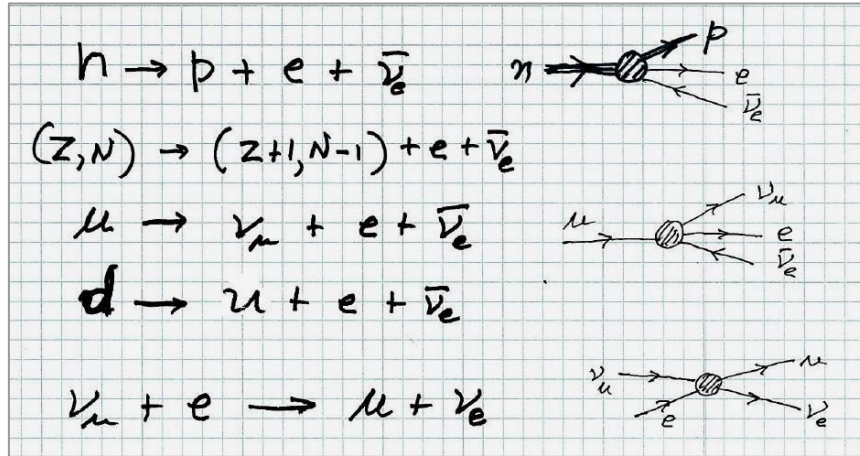 n → p + e + ν̄_e
n p e ν̄_e
(Z,N) → (Z+1,N-1) + e + ν̄_e
μ → ν_μ + e + ν̄_e
μ ν_μ e ν̄_e
d → u + e + ν̄_e
ν_μ + e → μ + ν_e
ν_μ e μ ν_e